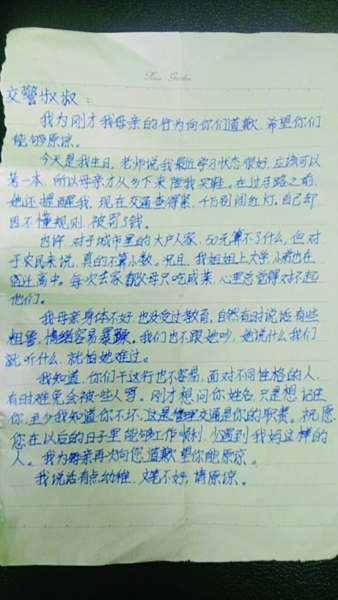 Garden
交警叔叔：
我为刚才我母亲的行为向你们道歉,希望你们
能够原谅。
今天是我生日,老师说我最近学习状态很好,应该可以
第一本,所以母亲才从乡下来陪我买鞋。在过马路之前,
她还提醒我,现在交通查得紧,千万别闯红灯,自己却
因不懂规则,被罚了钱。
也许,对于城市里的大户人家,50元算不了什么,但对
于农民来说,真的不算小数。况且,我姐姐上大学,小弟也在
读高中。每次去家都父母只吃咸菜,心里总觉得对不起
他们。
我母亲身体不好,也没受过教育,自然有时说话有些
粗鲁,情绪容易暴躁。我们也不跟她吵,她说什么我们
就听什么,就怕她难过。
我知道,你们干这行也不容易,面对不同性格的人,
有时难免会被一些人骂。刚才想问你姓名,只是想记住
你,至少我知道你不坏,这是管理交通是你的职责。祝愿
您在以后的日子里能够工作顺利,少遇到我妈这样的
人。我为母亲再次向您道歉,望你能原谅。
我说话有点幼稚,文笔不好,请原谅。